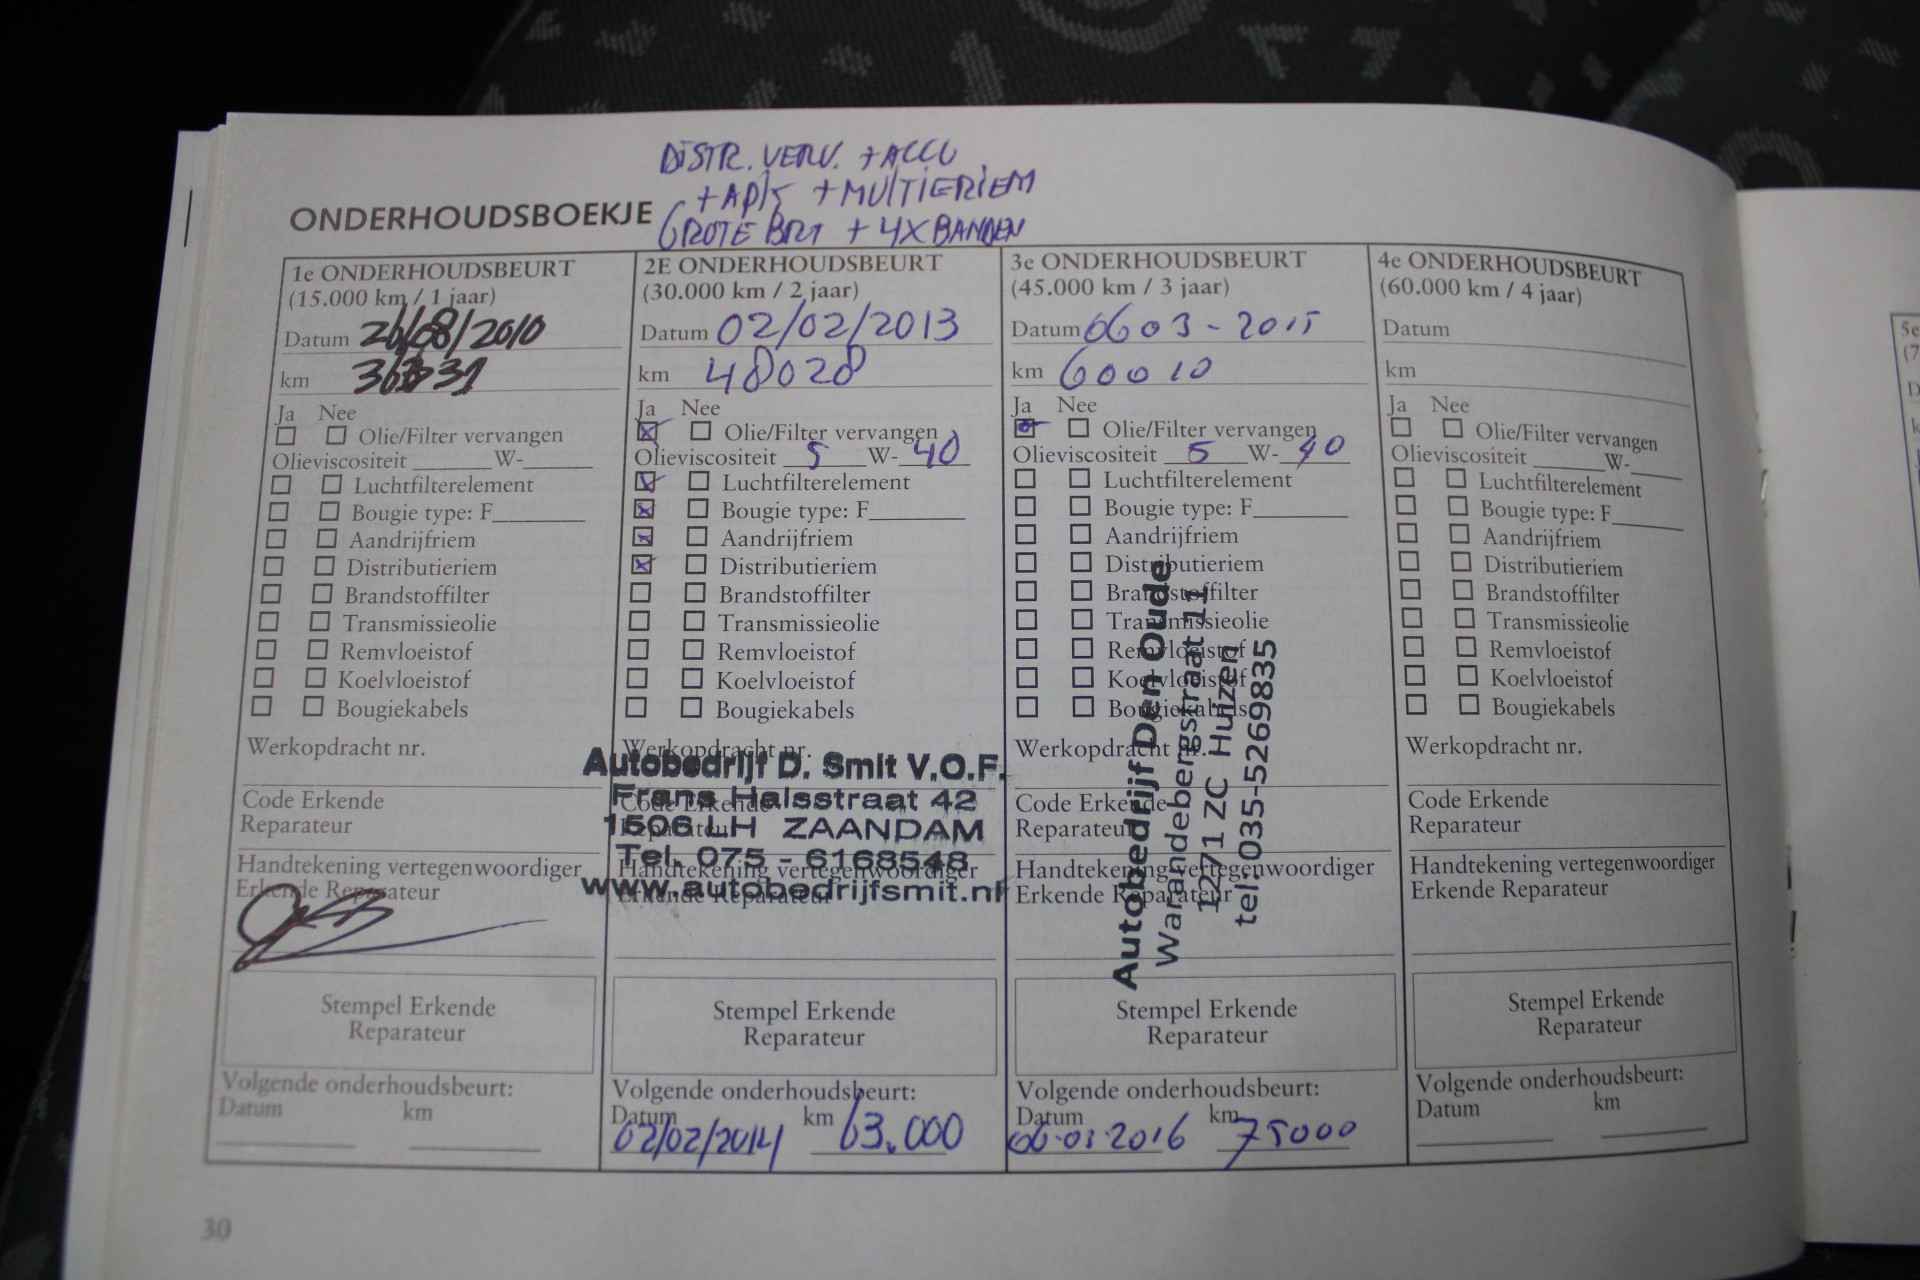 DISTR. VERV. + ACCU
+ APK + MULTIERIEM
GROTE BRT + 4X BANDEN
ONDERHOUDSBOEKJE
1e ONDERHOUDSBEURT
(15.000 km / 1 jaar)
Datum 26/08/2010
km
Ja Nee
Olie/Filter vervangen
Olieviscositeit ______W-______
Luchtfilterelement
Bougie type: F_______
Aandrijfriem
Distributieriem
Brandstoffilter
Transmissieolie
Remvloeistof
Koelvloeistof
Bougiekabels
Werkopdracht nr.
Code Erkende
Reparateur
Handtekening vertegenwoordiger
Erkende Reparateur
Stempel Erkende
Reparateur
Volgende onderhoudsbeurt:
Datum km
2E ONDERHOUDSBEURT
(30.000 km / 2 jaar)
Datum 02/02/2013
km 48028
Ja Nee
Olie/Filter vervangen
Olieviscositeit 5 W- 40
Luchtfilterelement
Bougie type: F_______
Aandrijfriem
Distributieriem
Brandstoffilter
Transmissieolie
Remvloeistof
Koelvloeistof
Bougiekabels
Werkopdracht nr.
Autobedrijf D. Smit V.O.F.
Frans Halsstraat 42
Code Erkende
1506 LH ZAANDAM
Reparateur
Tel. 075 - 6168548
Handtekening vertegenwoordiger
www.autobedrijfsmit.nl
Erkende Reparateur
Stempel Erkende
Reparateur
Volgende onderhoudsbeurt:
Datum km
02/02/2014 63.000
3e ONDERHOUDSBEURT
(45.000 km / 3 jaar)
Datum 06 03 - 2015
km 60010
Ja Nee
Olie/Filter vervangen
Olieviscositeit 5 W- 40
Luchtfilterelement
Bougie type: F_______
Aandrijfriem
Distributieriem
Brandstoffilter
Transmissieolie
Remvloeistof
Koelvloeistof
Bougiekabels
Werkopdracht nr.
Code Erkende
Reparateur
Handtekening vertegenwoordiger
Erkende Reparateur
Autobedrijf Den Oude
Warandebergstraat 11
1271 ZC Huizen
tel 035-5269835
Stempel Erkende
Reparateur
Volgende onderhoudsbeurt:
Datum km
06-03-2016 75000
4e ONDERHOUDSBEURT
(60.000 km / 4 jaar)
Datum
km
Ja Nee
Olie/Filter vervangen
Olieviscositeit ______W-____
Luchtfilterelement
Bougie type: F_______
Aandrijfriem
Distributieriem
Brandstoffilter
Transmissieolie
Remvloeistof
Koelvloeistof
Bougiekabels
Werkopdracht nr.
Code Erkende
Reparateur
Handtekening vertegenwoordiger
Erkende Reparateur
Stempel Erkende
Reparateur
Volgende onderhoudsbeurt:
Datum km
30
5e
(7